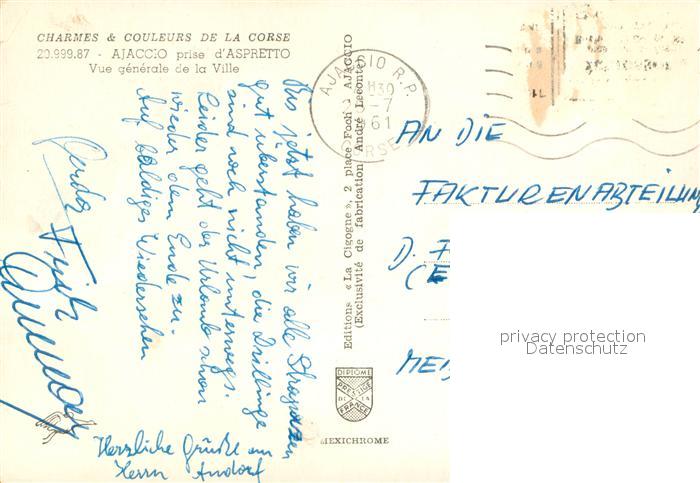 CHARMES & COULEURS DE LA CORSE
20.999.87 - AJACCIO prise d'ASPRETTO
Vue générale de la Ville
Bis jetzt haben wir alle Strapazen
gut überstanden, die Drillinge
sind noch nicht unterwegs.
Leider geht der Urlaub schon
wieder dem Ende zu.
Auf baldiges Wiedersehen
Herzliche Grüße an
Herrn Andorf
Editions « La Cigogne », 2 place Foch - AJACCIO
(Exclusivité de fabrication André Leconte)
AJACCIO R.P.
-7
1961
CORSE
AN DIE
FAKTURENABTEILUNG
D. F
(E
MEI
DIPLOME
PRESTIGE
DE LA
FRANCE
MEXICHROME
privacy protection
Datenschutz